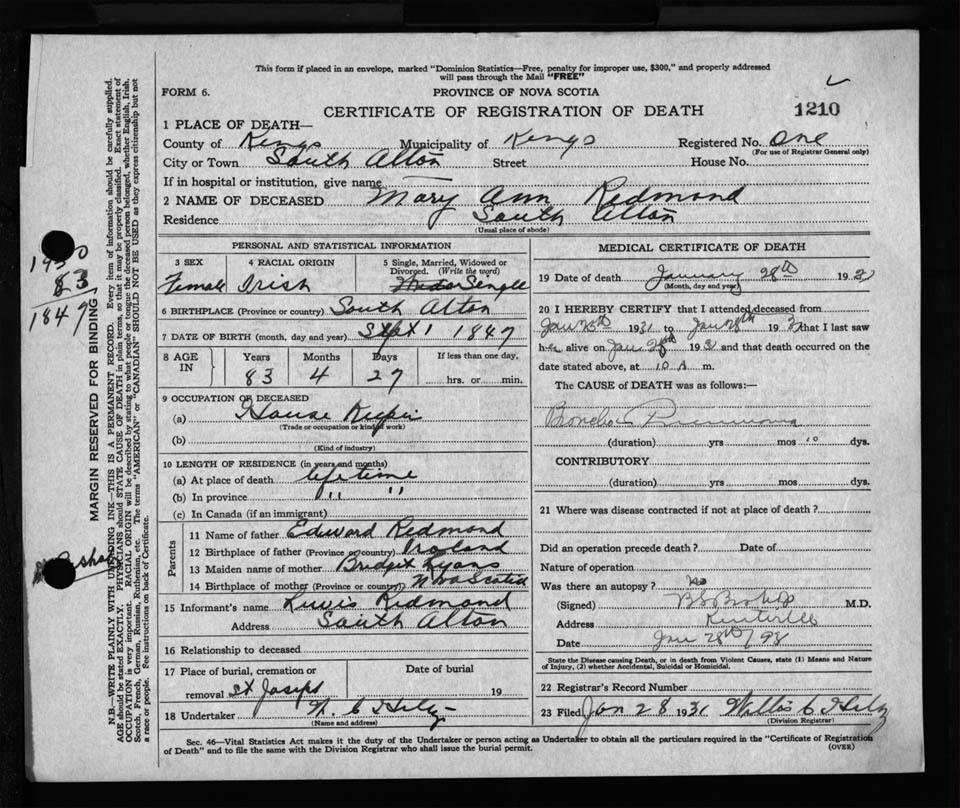 This form if placed in an envelope, marked "Dominion Statistics—Free, penalty for improper use, $300," and properly addressed
will pass through the Mail "FREE"
FORM 6.
PROVINCE OF NOVA SCOTIA
CERTIFICATE OF REGISTRATION OF DEATH
1210
1 PLACE OF DEATH—
County of Kings Municipality of Kings Registered No. One
(For use of Registrar General only)
City or Town South Alton Street House No.
If in hospital or institution, give name
2 NAME OF DECEASED Mary Ann Redmond
Residence South Alton
(Usual place of abode)
PERSONAL AND STATISTICAL INFORMATION
3 SEX 4 RACIAL ORIGIN 5 Single, Married, Widowed or
Divorced. (Write the word)
Female Irish Single
6 BIRTHPLACE (Province or country) South Alton
7 DATE OF BIRTH (month, day and year) Sept 1 1847
8 AGE IN Years Months Days If less than one day,
83 4 27 hrs. or min.
9 OCCUPATION OF DECEASED
(a) House Keeper
(Trade or occupation or kind of work)
(b)
(Kind of industry)
10 LENGTH OF RESIDENCE (in years and months)
(a) At place of death lifetime
(b) In province " "
(c) In Canada (if an immigrant)
Parents
11 Name of father Edward Redmond
12 Birthplace of father (Province or country) Ireland
13 Maiden name of mother Bridget Lyons
14 Birthplace of mother (Province or country) Nova Scotia
15 Informant's name Lewis Redmond
Address South Alton
16 Relationship to deceased
17 Place of burial, cremation or Date of burial
removal St Joseph 19
18 Undertaker
(Name and address)
MEDICAL CERTIFICATE OF DEATH
19 Date of death January 28th 193
(Month, day and year)
20 I HEREBY CERTIFY that I attended deceased from
Jan 1931 to Jan 28th 193 that I last saw
her alive on Jan 193 and that death occurred on the
date stated above, at 10 A m.
The CAUSE of DEATH was as follows:—
Broncho Pneumonia
(duration) yrs mos 10 dys.
CONTRIBUTORY
(duration) yrs. mos. dys.
21 Where was disease contracted if not at place of death?
Did an operation precede death? Date of
Nature of operation
Was there an autopsy? No
(Signed) M.D.
Address Kentville
Date Jan 28th
State the Disease causing Death, or in death from Violent Causes, state (1) Means and Nature
of Injury, (2) whether Accidental, Suicidal or Homicidal.
22 Registrar's Record Number
23 Filed Jan 28 1931
(Division Registrar)
Sec. 46—Vital Statistics Act makes it duty of the Undertaker or person acting as Undertaker to obtain all the particulars required in the "Certificate of Registration
of Death" and to file the same with the Division Registrar who shall issue the burial permit.
(OVER)
1930
83
1847
MARGIN RESERVED FOR BINDING
N.B.—WRITE PLAINLY WITH UNFADING INK—THIS IS A PERMANENT RECORD. Every item of information should be carefully supplied.
AGE should be stated EXACTLY. PHYSICIANS should STATE CAUSE OF DEATH in plain terms, so that it may be properly classified. Exact statement of
OCCUPATION is very important. RACIAL ORIGIN will be described by stating to what people or tongue the deceased person belonged, whether English, Irish,
Scotch, French, German, Russian, Ruthenian, etc. The terms "AMERICAN" or "CANADIAN" SHOULD NOT BE USED as they express citizenship but not
a race or people. See instructions on back of Certificate.